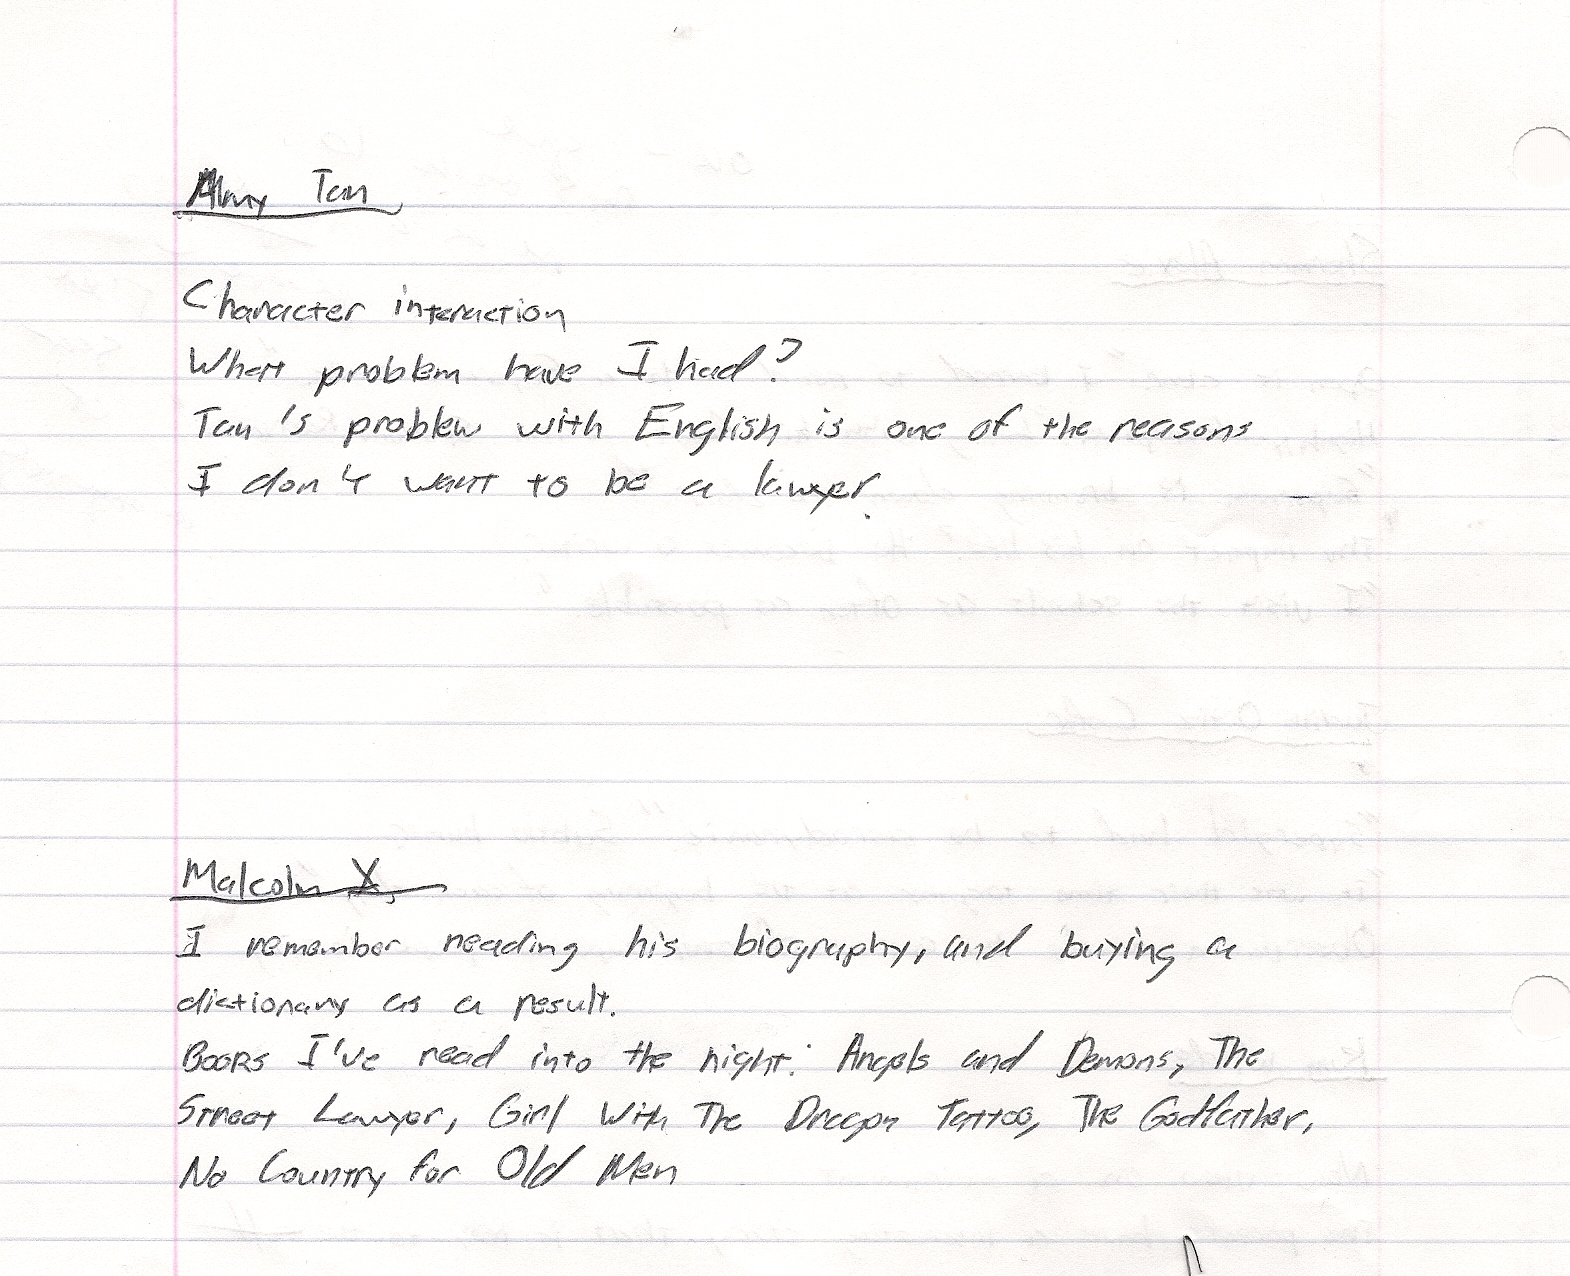 Amy Tan
Character interaction
What problem have I had?
Tan's problem with English is one of the reasons
I don't want to be a lawyer.
Malcolm X
I remember reading his biography, and buying a
dictionary as a result.
Books I've read into the night: Angels and Demons, The
Street Lawyer, Girl With The Dragon Tattoo, The Godfather,
No Country for Old Men